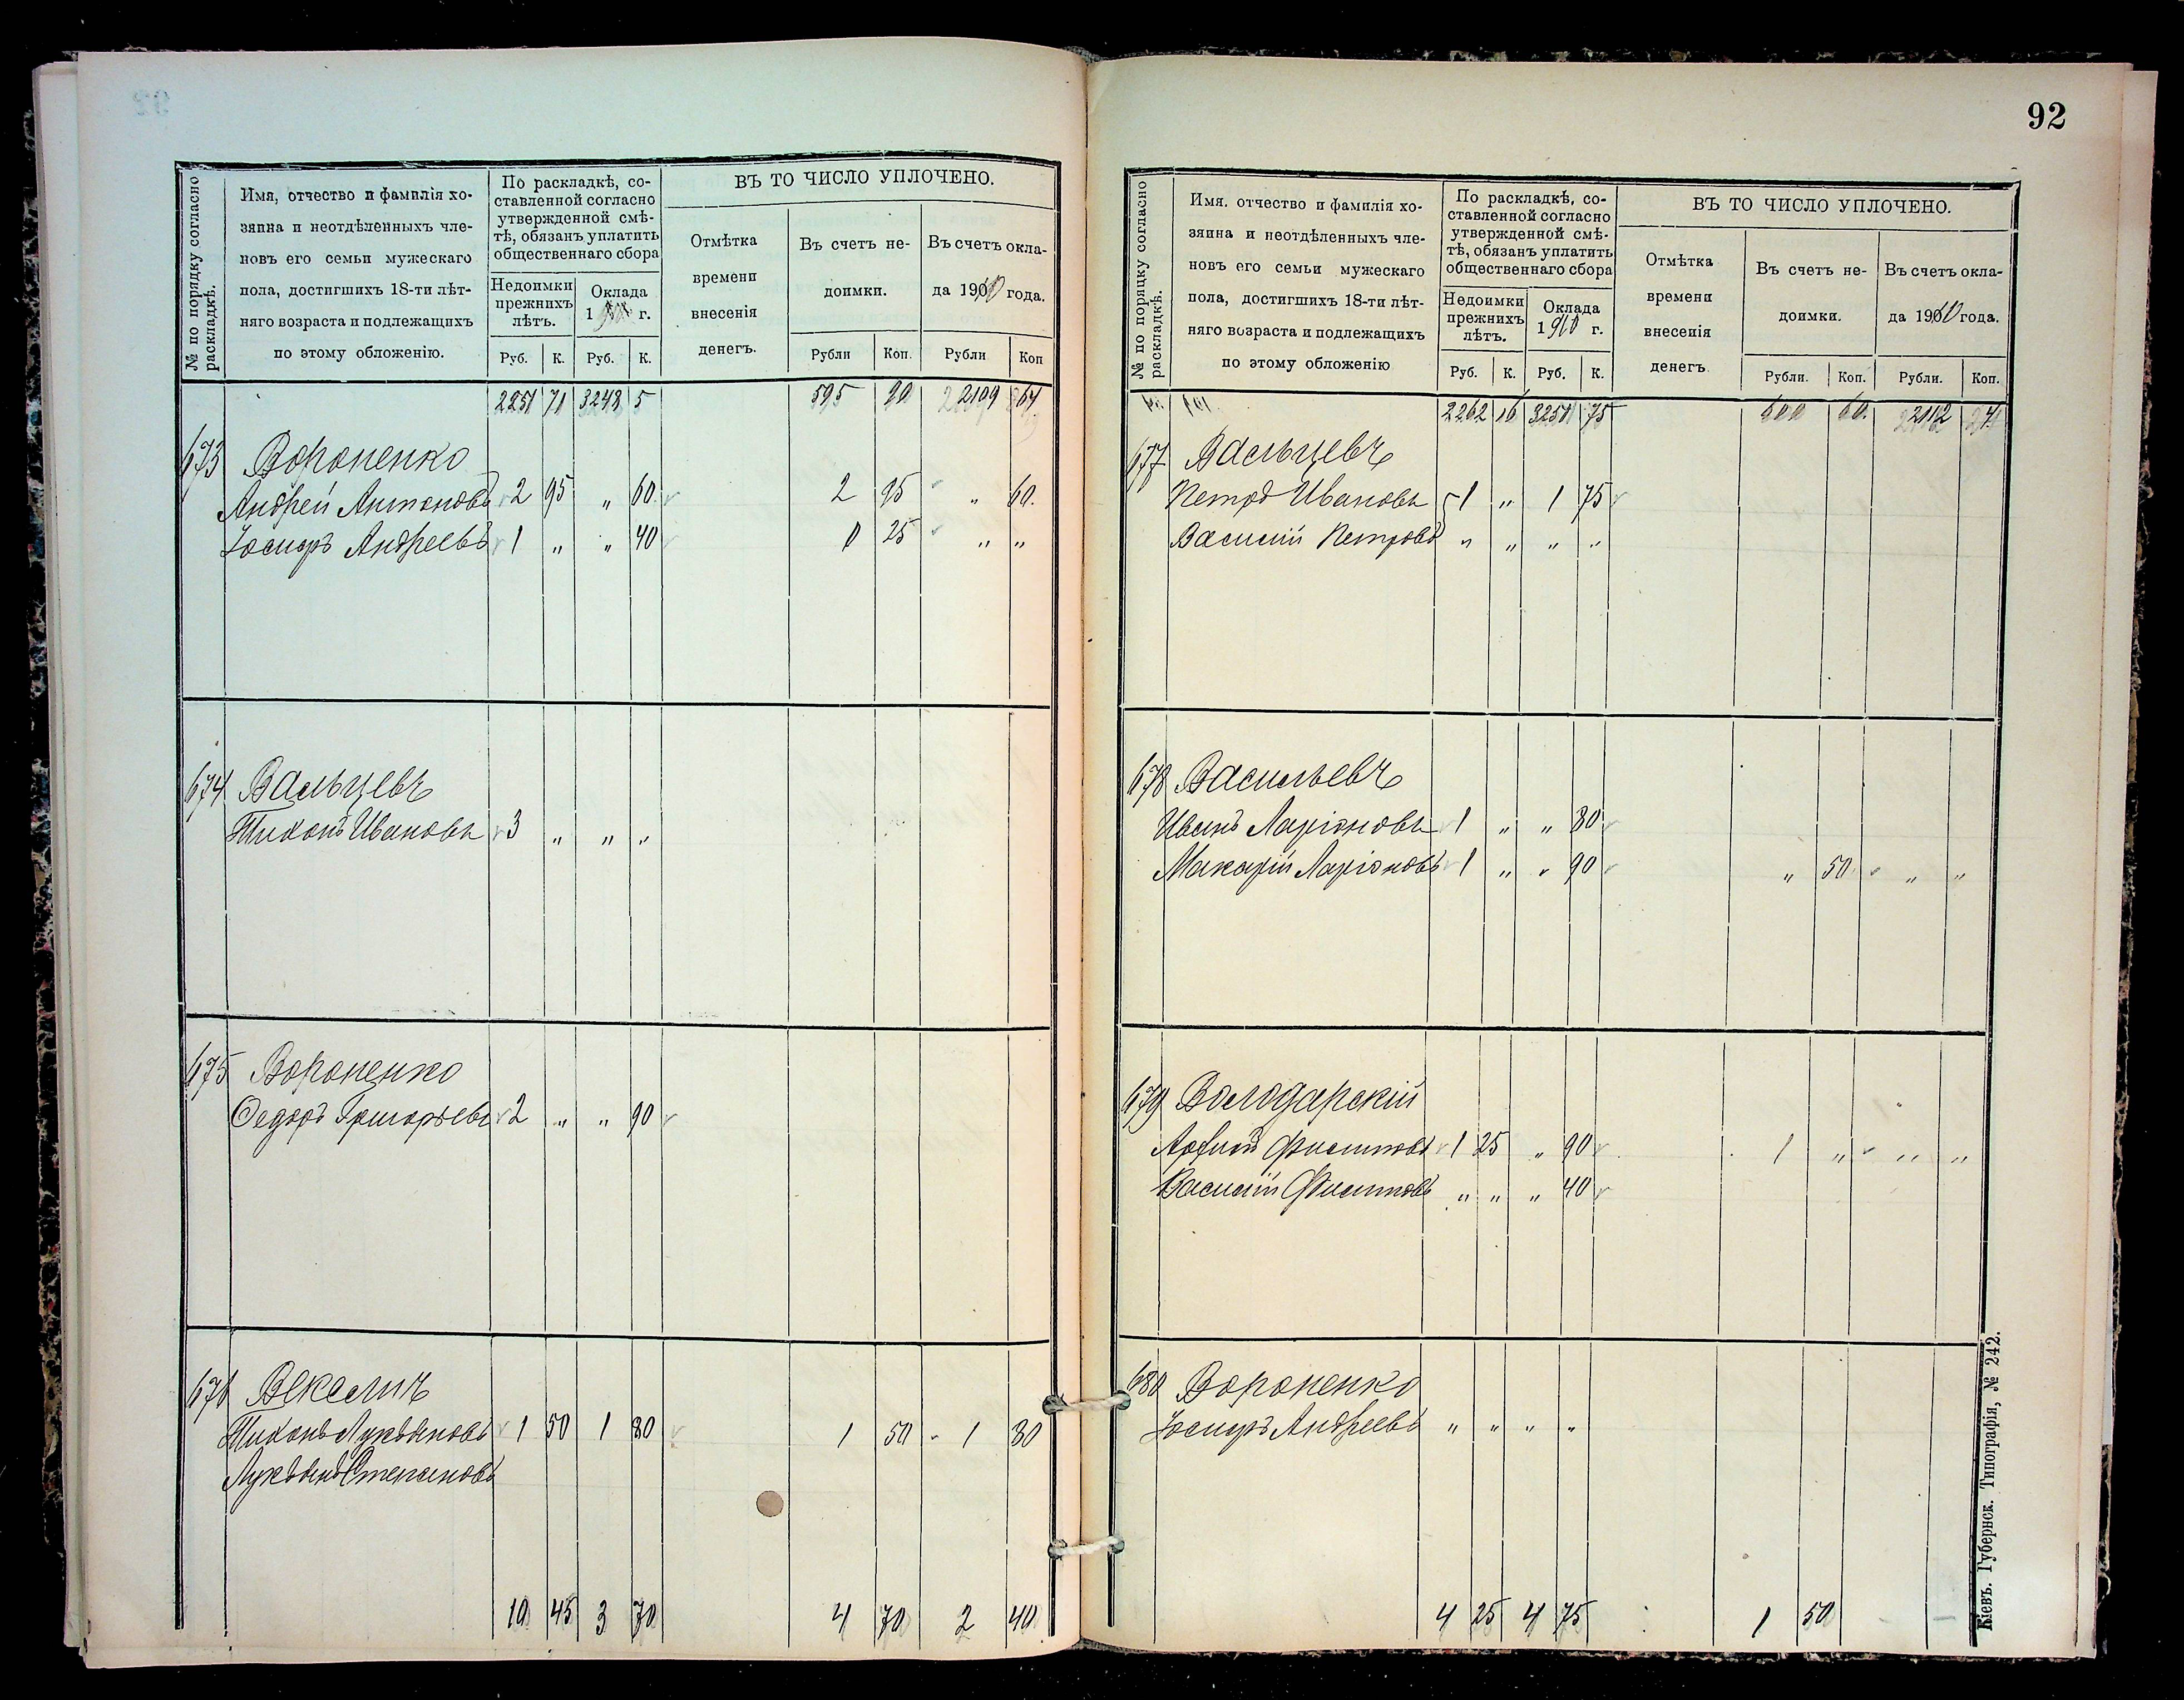 92
№ по порядку согласно раскладкѣ.
Имя, отчество и фамилія хо-
зяина и неотдѣленныхъ чле-
новъ его семьи мужескаго
пола, достигшихъ 18-ти лѣт-
няго возраста и подлежащихъ
по этому обложенію.
По раскладкѣ, со-
ставленной согласно
утвержденной смѣ-
тѣ, обязанъ уплатить
общественнаго сбора
Недоимки
прежнихъ
лѣтъ.
Оклада
1910 г.
Руб. К. Руб. К.
ВЪ ТО ЧИСЛО УПЛОЧЕНО.
Отмѣтка
времени
внесенія
денегъ.
Въ счетъ не-
доимки.
Въ счетъ окла-
да 1910 года.
Рубли Коп. Рубли Коп
2251 71 3248 5 595 90 2109 64
673 Вороненко
Андрей Антоновъ 2 95 „ 60 2 95 „ 60.
Іосифъ Андреевъ 1 „ „ 40 0 25 „ „
674 Вальцевъ
Тихонъ Ивановъ 3 „ „ „
675 Вороненко
Федоръ Григорьевъ 2 „ „ 90
676 Векличъ
Тихонъ Лукьяновъ 1 50 1 80 1 50 1 80
Лукьянъ Степановъ
10 45 3 70 4 70 2 40
№ по порядку согласно раскладкѣ.
Имя. отчество и фамилія хо-
зяина и неотдѣленныхъ чле-
новъ его семьи мужескаго
пола, достигшихъ 18-ти лѣт-
няго возраста и подлежащихъ
по этому обложенію
По раскладкѣ, со-
ставленной согласно
утвержденной смѣ-
тѣ, обязанъ уплатить
общественнаго сбора
Недоимки
прежнихъ
лѣтъ.
Оклада
1910 г.
Руб. К. Руб. К.
ВЪ ТО ЧИСЛО УПЛОЧЕНО.
Отмѣтка
времени
внесенія
денегъ.
Въ счетъ не-
доимки.
Въ счетъ окла-
да 1910 года.
Рубли. Коп. Рубли. Коп.
2262 16 3251 75 600 60. 2112 4
677 Вальцевъ
Петръ Ивановъ 1 „ 1 75
Василій Петровъ „ „ „ „
678 Васильевъ
Иванъ Ларіоновъ 1 „ „ 80
Макарій Ларіоновъ 1 „ „ 90 „ 50 „ „
679 Володарскій
Архипъ Филиповъ 1 25 „ 90 1 „ „ „
Василій Филиповъ „ „ „ 40
680 Вороненко
Іосифъ Андреевъ „ „ „ „
4 25 4 75 1 50
Кіевъ. Губернск. Типографія, № 242.